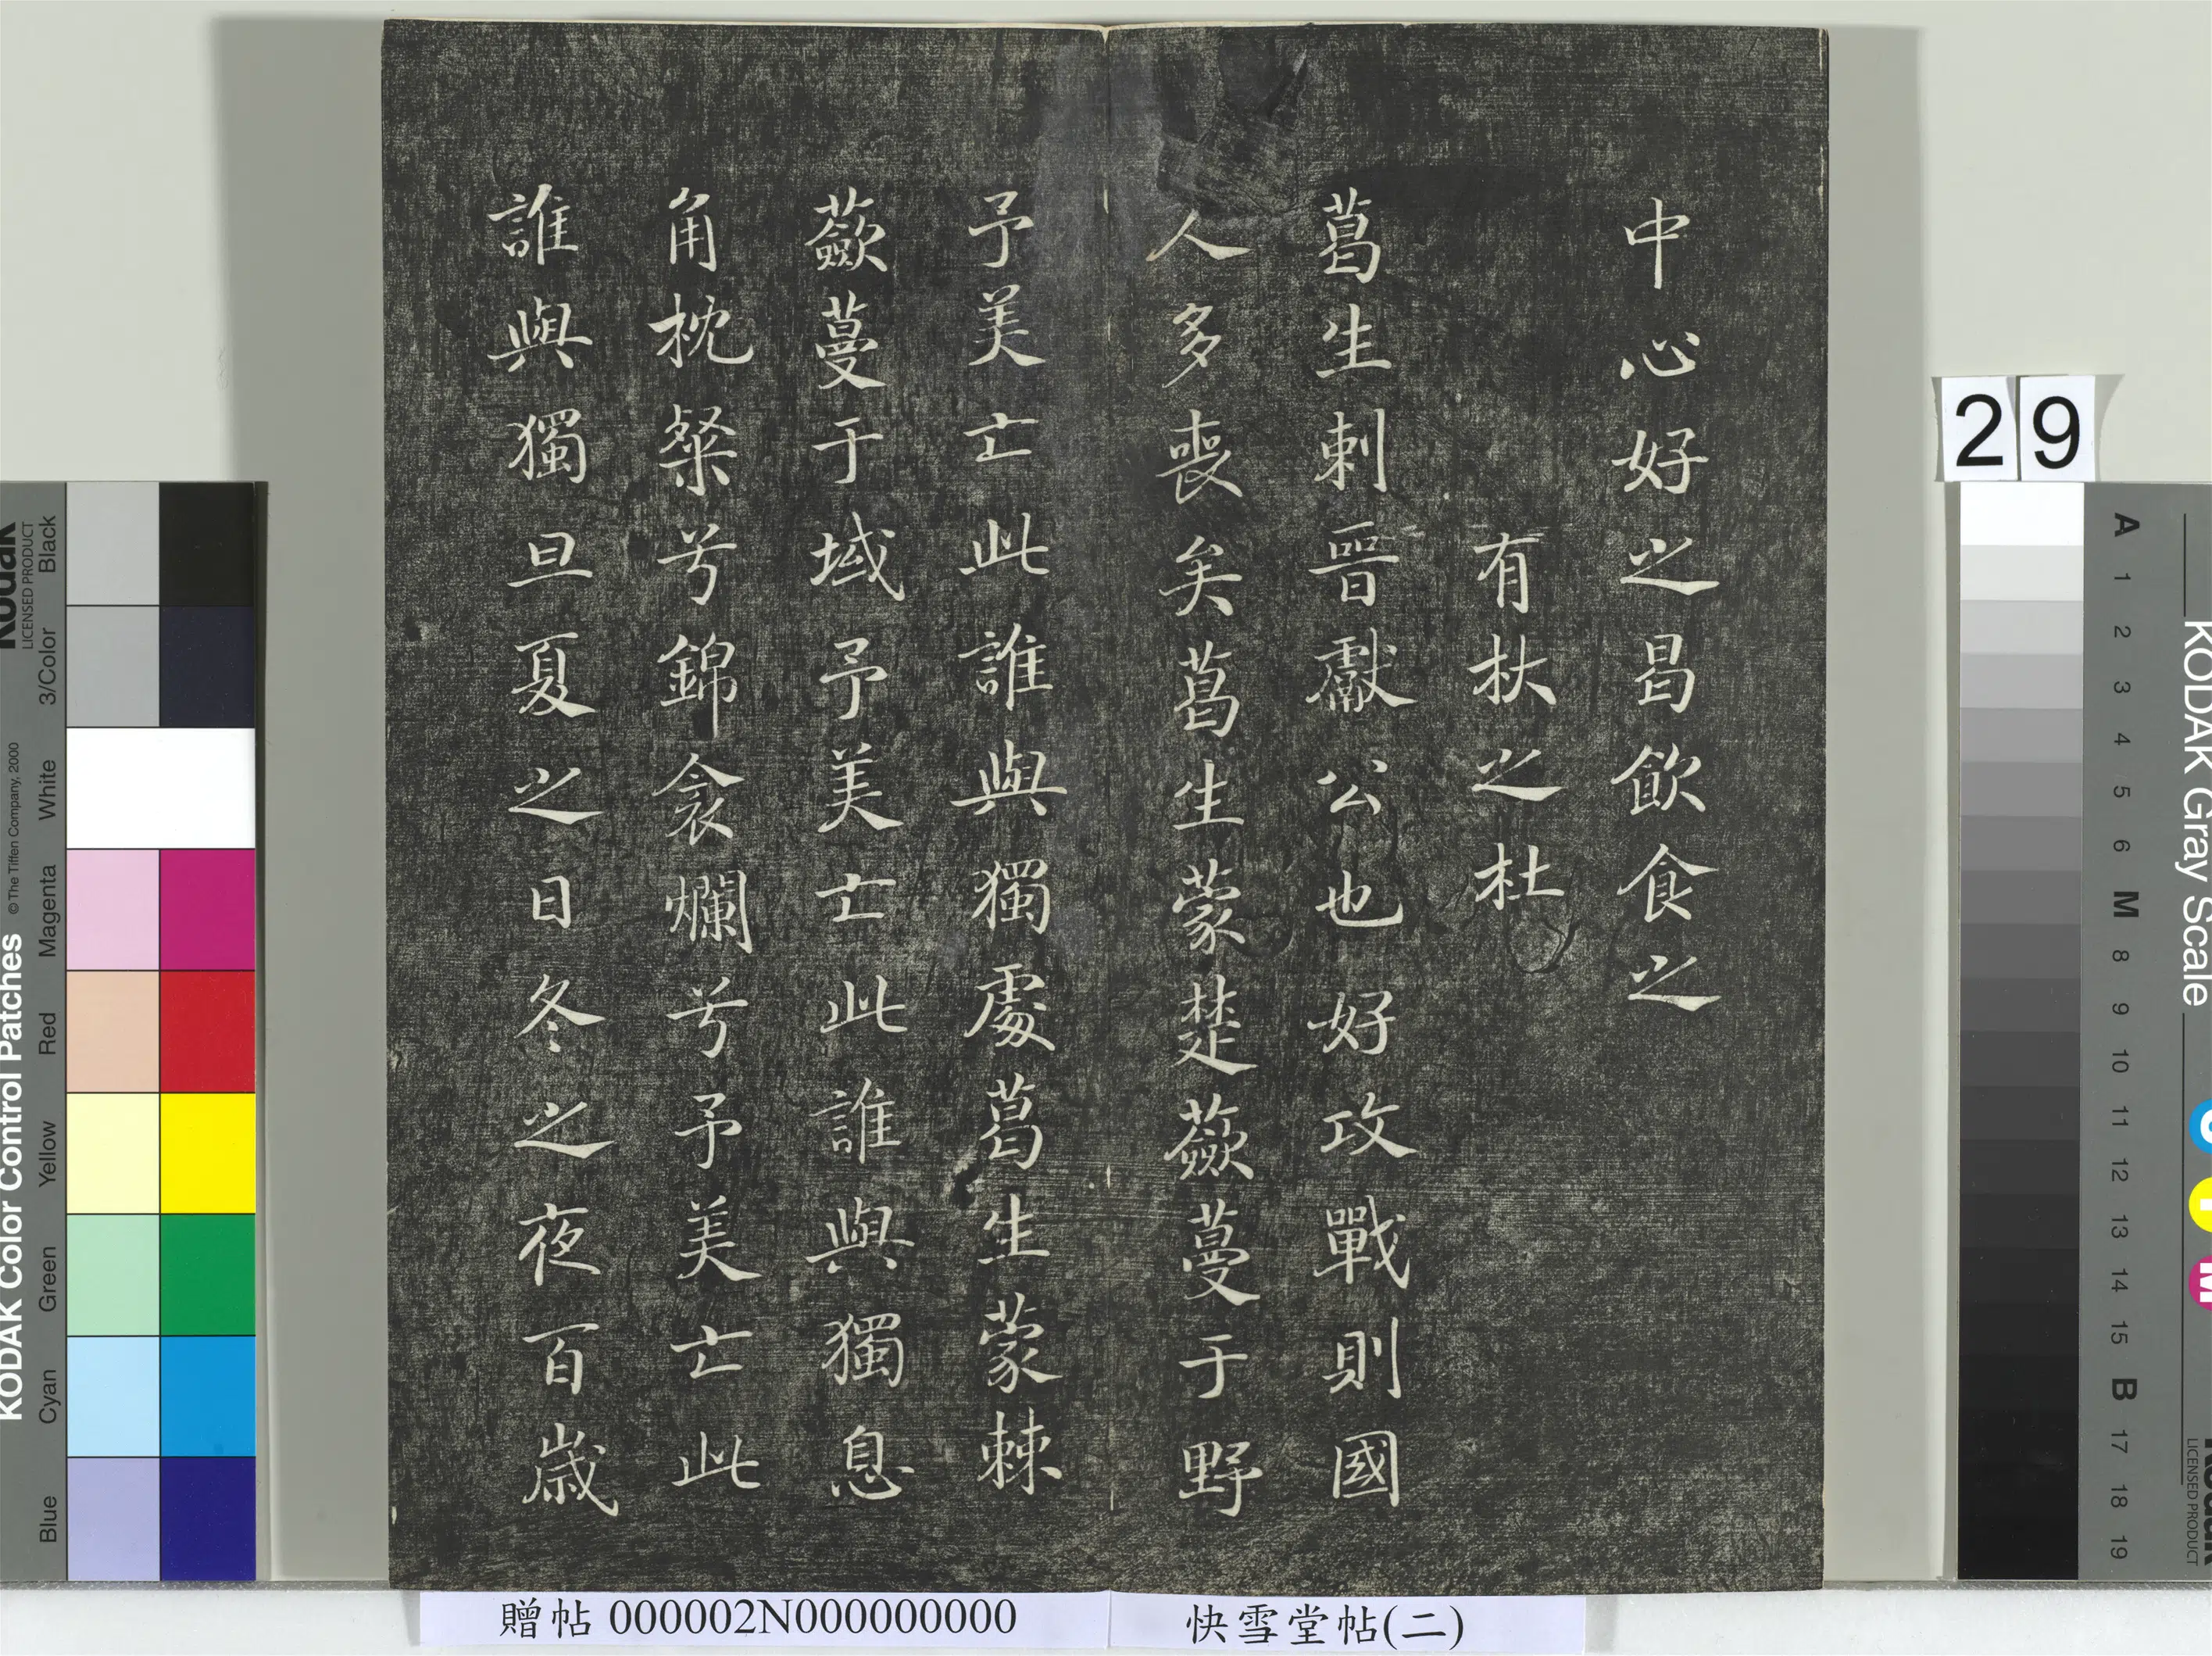 中心好之曷飲食之
有杕之杜
葛生刺晉獻公也好攻戰則國
人多喪矣葛生蒙楚蘞蔓于野
予美亡此誰與獨處葛生蒙棘
蘞蔓于域予美亡此誰與獨息
角枕粲兮錦衾爛兮予美亡此
誰與獨旦夏之日冬之夜百歲
贈帖 000002N000000000
快雪堂帖(二)
29
KODAK Color Control Patches
©The Tiffen Company, 2000
Kodak
LICENSED PRODUCT
Blue
Cyan
Green
Yellow
Red
Magenta
White
3/Color
Black
KODAK Gray Scale
A 1 2 3 4 5 6 M 8 9 10 11 12 13 14 15 B 17 18 19
C
Y
M
Kodak
LICENSED PRODUCT